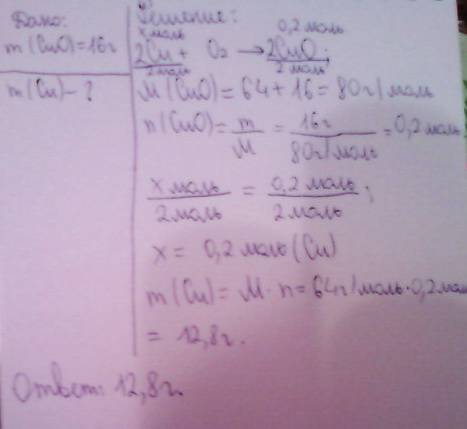 Дано:
m(CuO)=16г
m(Cu)-?
Решение:
x моль 0,2 моль
2Cu + O₂ → 2CuO;
2 моль 2 моль
M(CuO)=64+16=80г/моль
n(CuO)= m/M = 16г/80г/моль = 0,2 моль
x моль/2 моль = 0,2 моль/2 моль;
x = 0,2 моль (Cu)
m(Cu)= M·n=64г/моль·0,2 моль
= 12,8г.
Ответ: 12,8г.